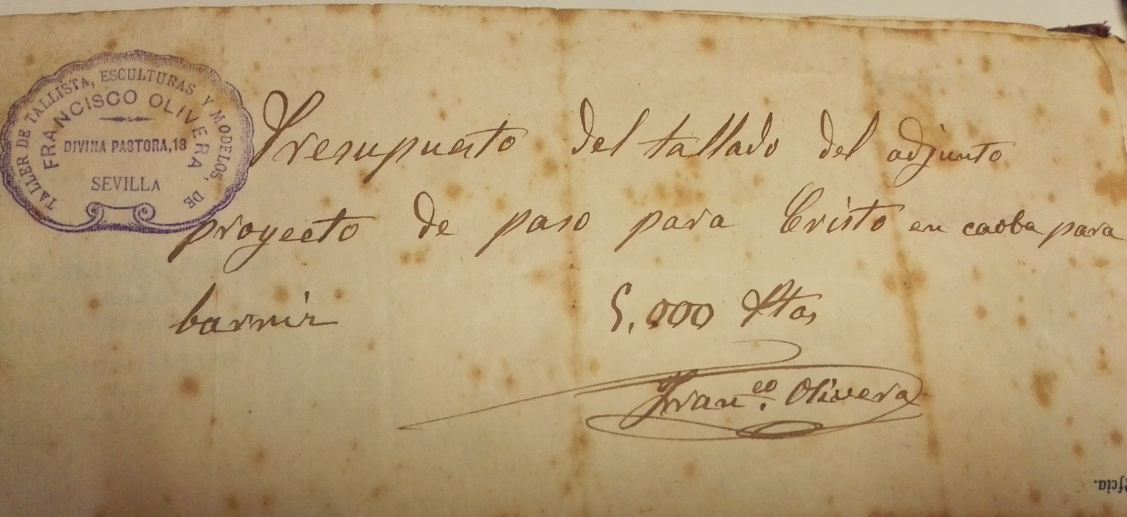 TALLER DE TALLISTA, ESCULTURAS Y MODELOS, DE
FRANCISCO OLIVERA
DIVINA PASTORA, 18
SEVILLA
Presupuesto del tallado del adjunto
proyecto de paso para Cristo en caoba para
barnir 5.000 Ptas
Fran.co Olivera
Rfcia.